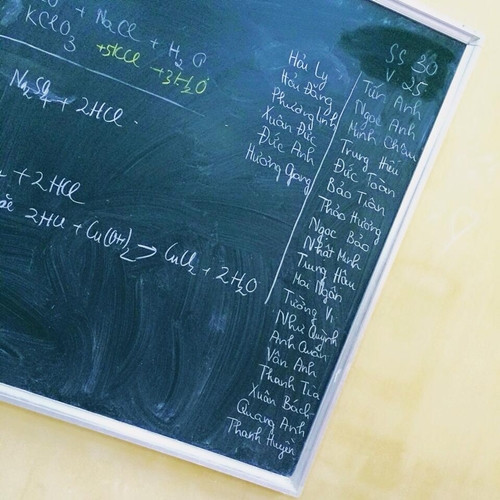 + NaCl + H₂O
KClO₃ +5KCl +3H₂O
Na₂SO₄ + 2HCl
+ 2HCl
2HCl + Cu(OH)₂ → CuCl₂ + 2H₂O
Hải Ly
Hải Đăng
Phương Linh
Xuân Đức
Đức Anh
Hương Giang
SS 30
V 25
Tiến Anh
Ngọc Anh
Minh Châu
Trung Hiếu
Đức Toàn
Bảo Trân
Thảo Hương
Ngọc Bảo
Nhật Minh
Trung Hiếu
Mai Ngân
Tường Vi
Như Quỳnh
Anh Quân
Vân Anh
Thanh Trà
Xuân Bách
Quang Anh
Thanh Huyền